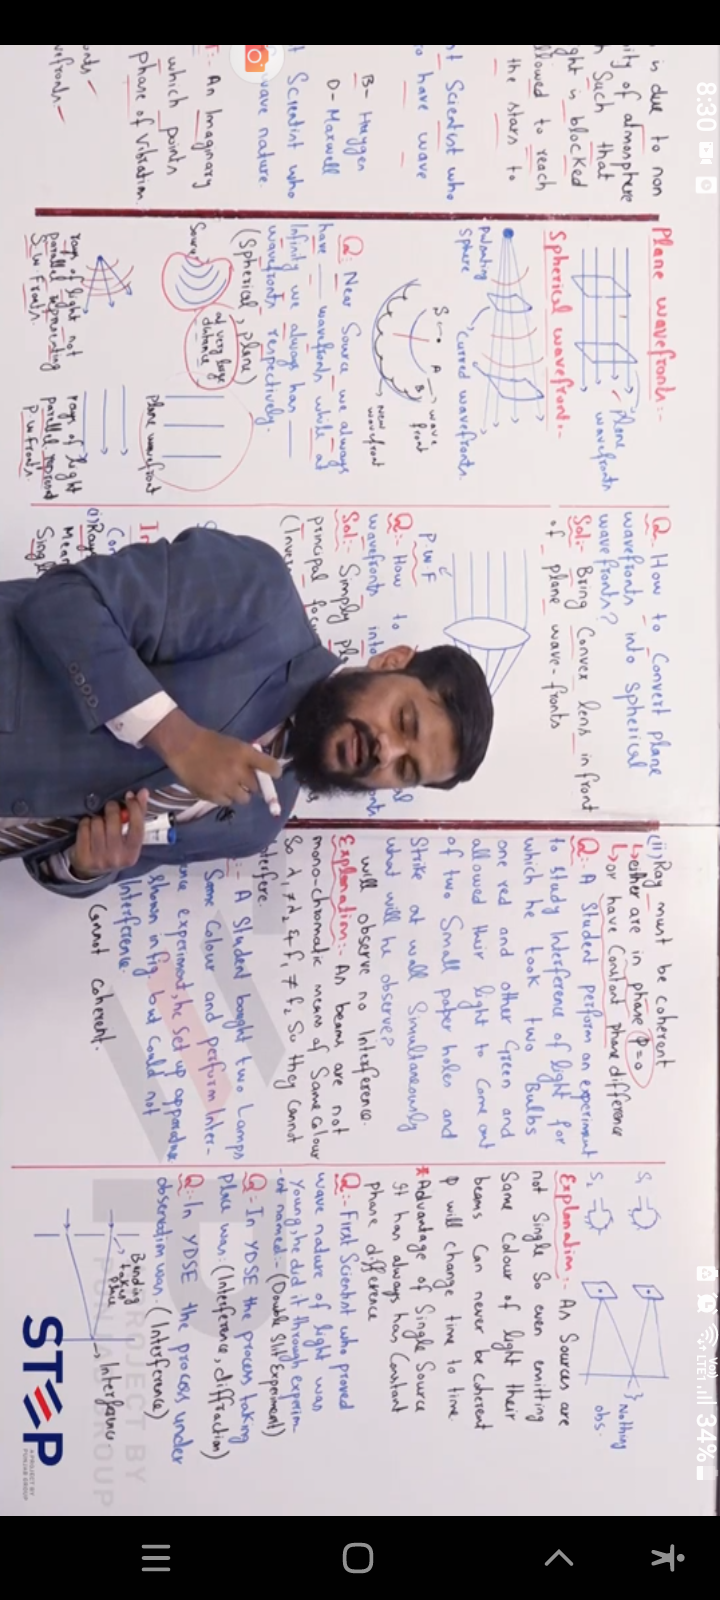 8:30
34%
is due to non
ity of atmosphere
Such that
ght is blocked
llowed to reach
the stars to
st Scientist who
to have wave
B- Huygen
D- Maxwell
t Scientist who
wave nature
:- An Imaginary
which points
phase of Vibration
Plane wavefronts:-
Plane
wavefronts
Spherical wavefront:-
Pulsating
Sphere
Curved wavefronts
S
A
B
wave
front
New
wavefront
Q: Near Source we always
have ___ wavefronts while at
Infinity we always has ___
wavefronts respectively.
(Spherical, plane)
Source
at very large
distance
Plane wavefront
rays of light not
parallel representing
S.W. Fronts.
rays of light
parallel represent
P.W Fronts.
Q. How to Convert plane
wavefronts into Spherical
wavefronts?
Sol:- Bring Convex lens in front
of plane wave-fronts
P.W.F
Q: How to
wavefronts into
Sol:- Simply
principal
(ii) Ray must be coherent
either are in phase Φ=0
or have Constant phase difference
Q: A Student perform an experiment
to study Interference of light for
which he took two Bulbs
one red and other Green and
allowed their light to come out
of two Small paper holes and
Strike at wall Simultaneously
what will he observe?
will observe no Interference.
Explanation:- As beams are not
mono-chromatic means of Same Colour
So λ₁ ≠ λ₂ & f₁ ≠ f₂ So they Cannot
Interfere.
:- A Student bought two Lamps
Same Colour and perform Inter-
ence experiment, he Set up apparatus
Shown in fig. but Could not
Interference.
Cannot Coherent.
S₁
S₂
Nothing
obs.
Explanation:- As Sources are
not Single So even emitting
Same Colour of light their
beams Can never be Coherent
Φ will change time to time
*Advantage of Single Source
It has always has Constant
phase difference
Q:- First Scientist who proved
wave nature of light was
Young, he did it through experim-
ent named - (Double Slit Experiment)
Q:- In YDSE the process taking
place was: (Interference, diffraction)
Q:- In YDSE the process under
observation was: (Interference)
taking
place
Interference
STEP
A PROJECT BY
PUNJAB GROUP